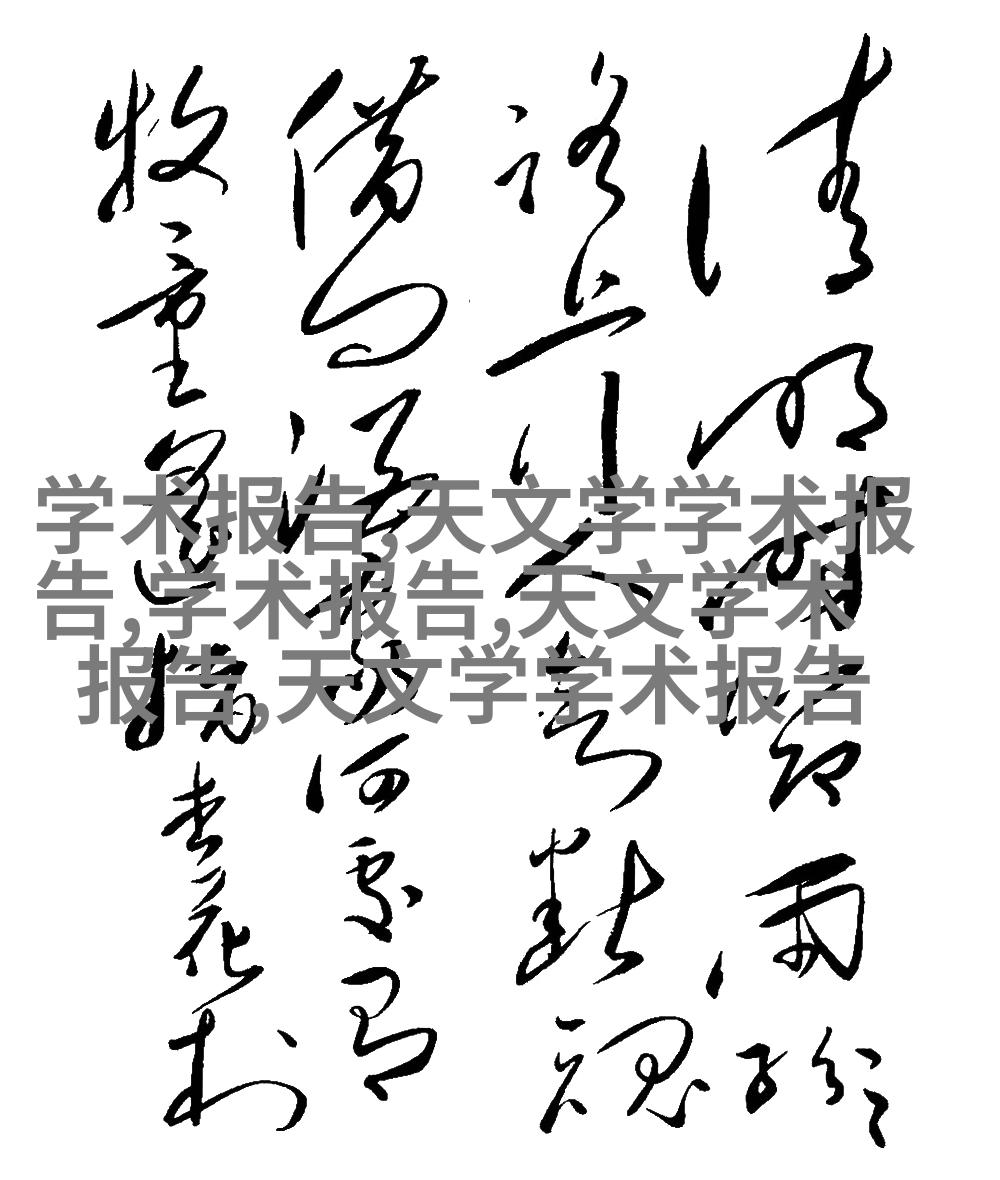 清明時節雨紛紛
路上行人欲斷魂
借問酒家何處有
牧童遙指杏花村
学术报告,天文学学术报
告,学术报告,天文学术
报告,天文学学术报告